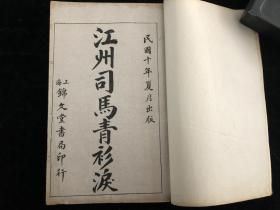 民國十年夏月出版
江州司馬青衫淚
上海錦文堂書局印行